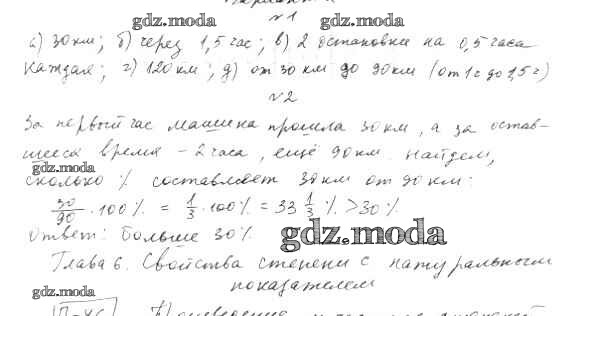 №1
gdz.moda gdz.moda gdz.moda
а) 30км; б) через 1,5 час; в) 2 остановки на 0,5 часа
каждая; г) 120км; д) от 30 км до 90км (от 1ч до 1,5ч)
№2
За первый час машина прошла 30км, а за остав-
шееся время - 2 часа, ещё 90км. Найдем,
gdz.moda
сколько % составляет 30км от 90км:
30/90 · 100% = 1/3 · 100% = 33 1/3 % > 30%
Ответ: больше 30%.
gdz.moda
Глава 6. Свойства степени с натуральным
показателем
gdz.moda